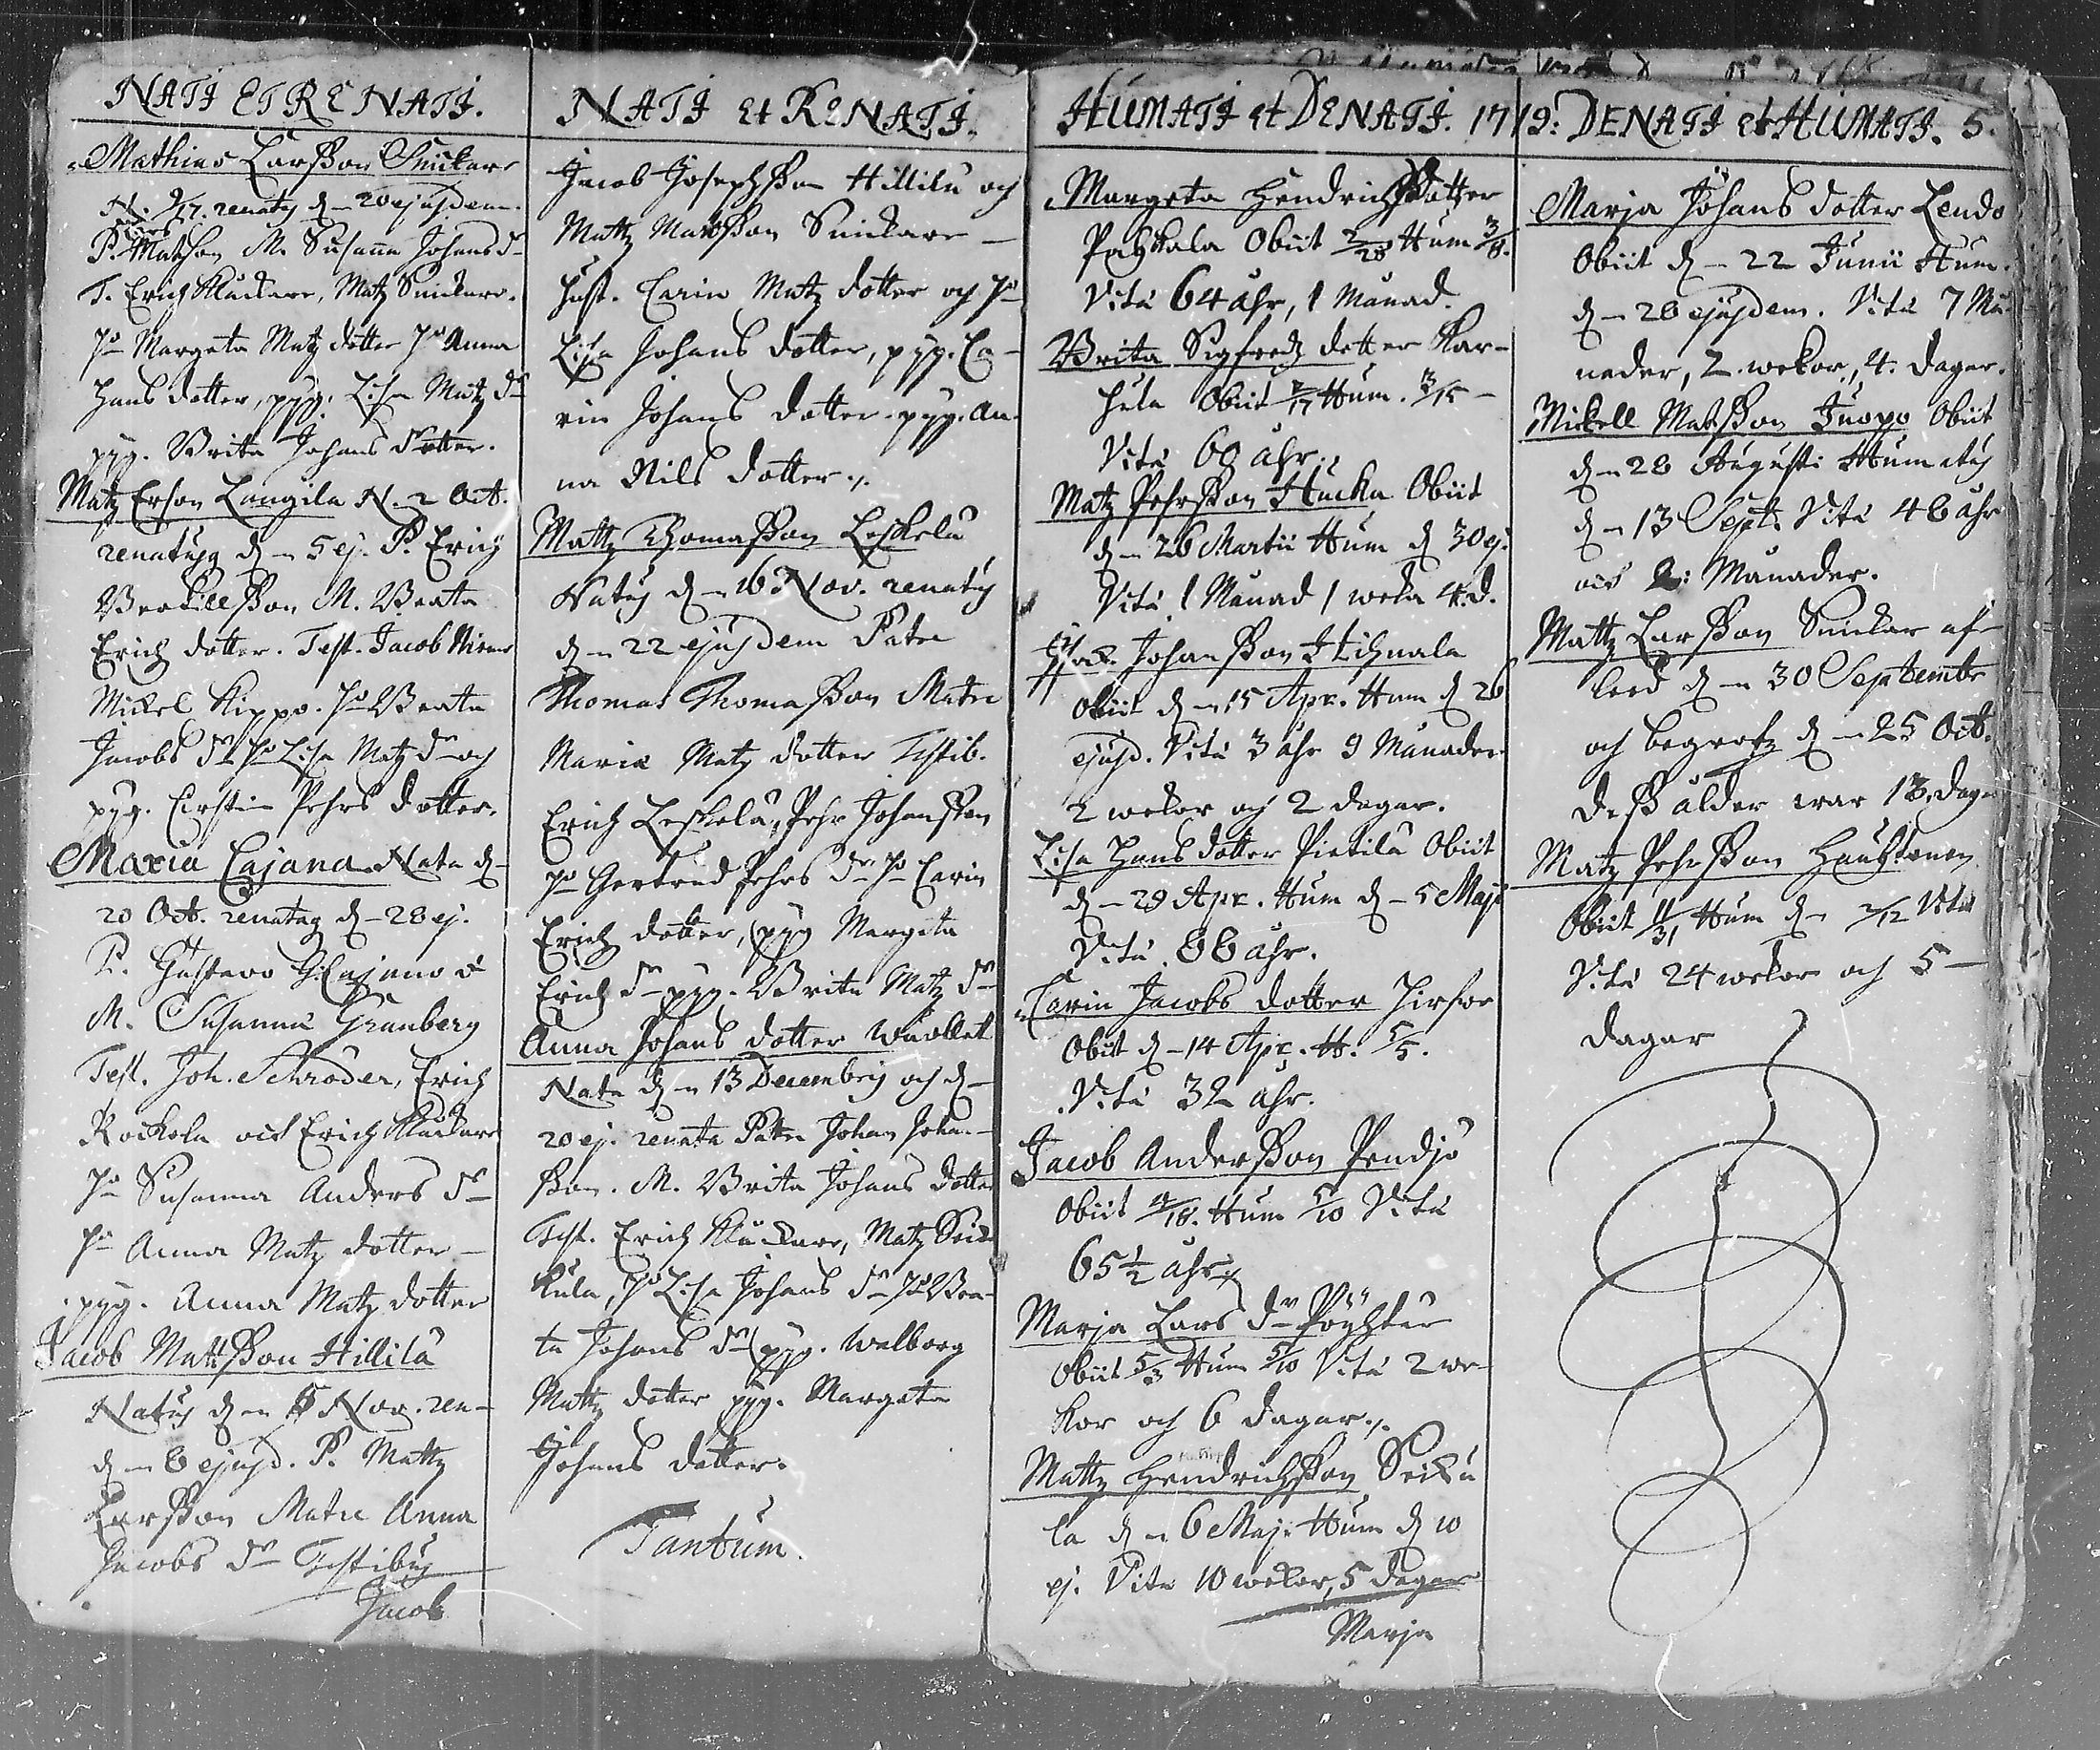 NATI ET RENATI.
Mathias Larsson Snickare
N. 9/17. renatus d. 20 ejusdem.
Lars
P. Matson M. Susanna Johans dr
T. Erich Kluckare, Matz Snickare.
Ho Margeta Matz dotter Ho Anna
Hans dotter, pyg. Lisa Matz dr
pyg. Brita Johans dotter.
Matz Erson Langila N. 2 Oct.
renatus d. 5 ej. P. Erich
Bertillsson M. Beata
Erich dotter. Test. Jacob
Mickel Kippo. Ho Beata
Jacobs dr Ho Lisa Matz dr och
pyg. Cirstin Pehrs dotter.
Maria Cajana Nata d.
20 Oct. renata d. 28 ej.
P. Gustavo Cajano
M. Susanna Granberg
Test. Joh. Schroder, Erich
Rockola och Erich Kluckare
Ho Susanna Anders dr
Ho Anna Matz dotter
pyg. Anna Matz dotter
Jacob Mattsson Hillilä
Natus d. 5 Nov. ren-
d. 8 ejusd. P. Mattz
Larsson Matre Anna
Jacobs dr Testibus
Jacob
NATI et RENATI.
Jacob Josephsson Hillilä och
Mattz Matsson Snickare
Hust. Carin Matz dotter och Ho
Lisa Johans dotter, pyg. Ca-
rin Johans dotter. pyg. An-
na Nils dotter.
Mattz Thomasson Leskelä
Natus d. 16 Nov. renatus
d. 22 ejusdem Patre
Thomas Thomasson Matre
Maria Matz dotter Testib.
Erich Leskelä, Pehr Johansson
Ho Gertrud Pehrs dr Ho Carin
Erich dotter, pyg Margeta
Erich dr pyg. Brita Matz dr
Anna Johans dotter Wuollet
Nata d. 13 Decembris och d.
20 ej. renata Patre Johan Johan-
sson. M. Brita Johans dotter
Test. Erich Kluckare, Matz Seic-
kula, Ho Lisa Johans dr Ho Bea-
ta Johans dr pyg. Walborg
Mattz dotter pyg. Margeta
Johans dotter.
Tantum.
HUMATI et DENATI. 1719: DENATI et HUMATI. 5.
Margeta Hendrichs Dotter
Paskala Obiit 2/28 Hum 3/8.
Vitæ 64 åhr, 1 Månad.
Brita Sigfredz dotter Kar-
hula Obiit 2/17 Hum. 3/15
Vitæ 60 åhr.
Matz Pehrsson Hucka Obiit
d. 26 Martii Hum d 30 ej.
Vitæ 1 Månad 1 weka 4. d.
Isac Johansson
Obiit d. 15 Apr. Hum d 26
ejusd. Vitæ 3 åhr 9 Månader
2 wekor och 2 dagar.
Lisa Hans dotter Pietilä Obiit
d. 29 Apr. Hum d. 5 Maji
Vitæ 88 åhr.
Carin Jacobs dotter Hirfwe
Obiit d. 14 Apr. H. 5/5.
Vitæ 32 åhr.
Jacob Andersson Pendjo
Obiit 4/18. Hum 5/10 Vitæ
65 1/2 åhr
Marja Lars dr Pöyhtäri
Obiit 5/3 Hum 5/10 Vitæ 2 we-
kor och 6 dagar
Mattz Hendrichsson Seicku
la d. 6 Maji Hum d 10
ej. Vitæ 10 wekor, 5 dagar
Marja
Marja Johans dotter Lendo
Obiit d. 22 Junii Hum.
d. 28 ejusdem. Vitæ 7 Må-
nader, 2 wekor, 4. dagar.
Mickell Matsson Juopo Obiit
d. 28 Augusti Humatus
d. 13 Sept. Vitæ 48 åhr
och 2: Månader.
Mattz Larsson Snickar af
leed d. 30 Septembr
och begrofz d. 25 Oct.
dess ålder war 13. dagar
Matz Pehrsson Hauhtonen
Obiit 11/31 Hum d. 2/12
Vitæ 24 wekor och 5
dagar